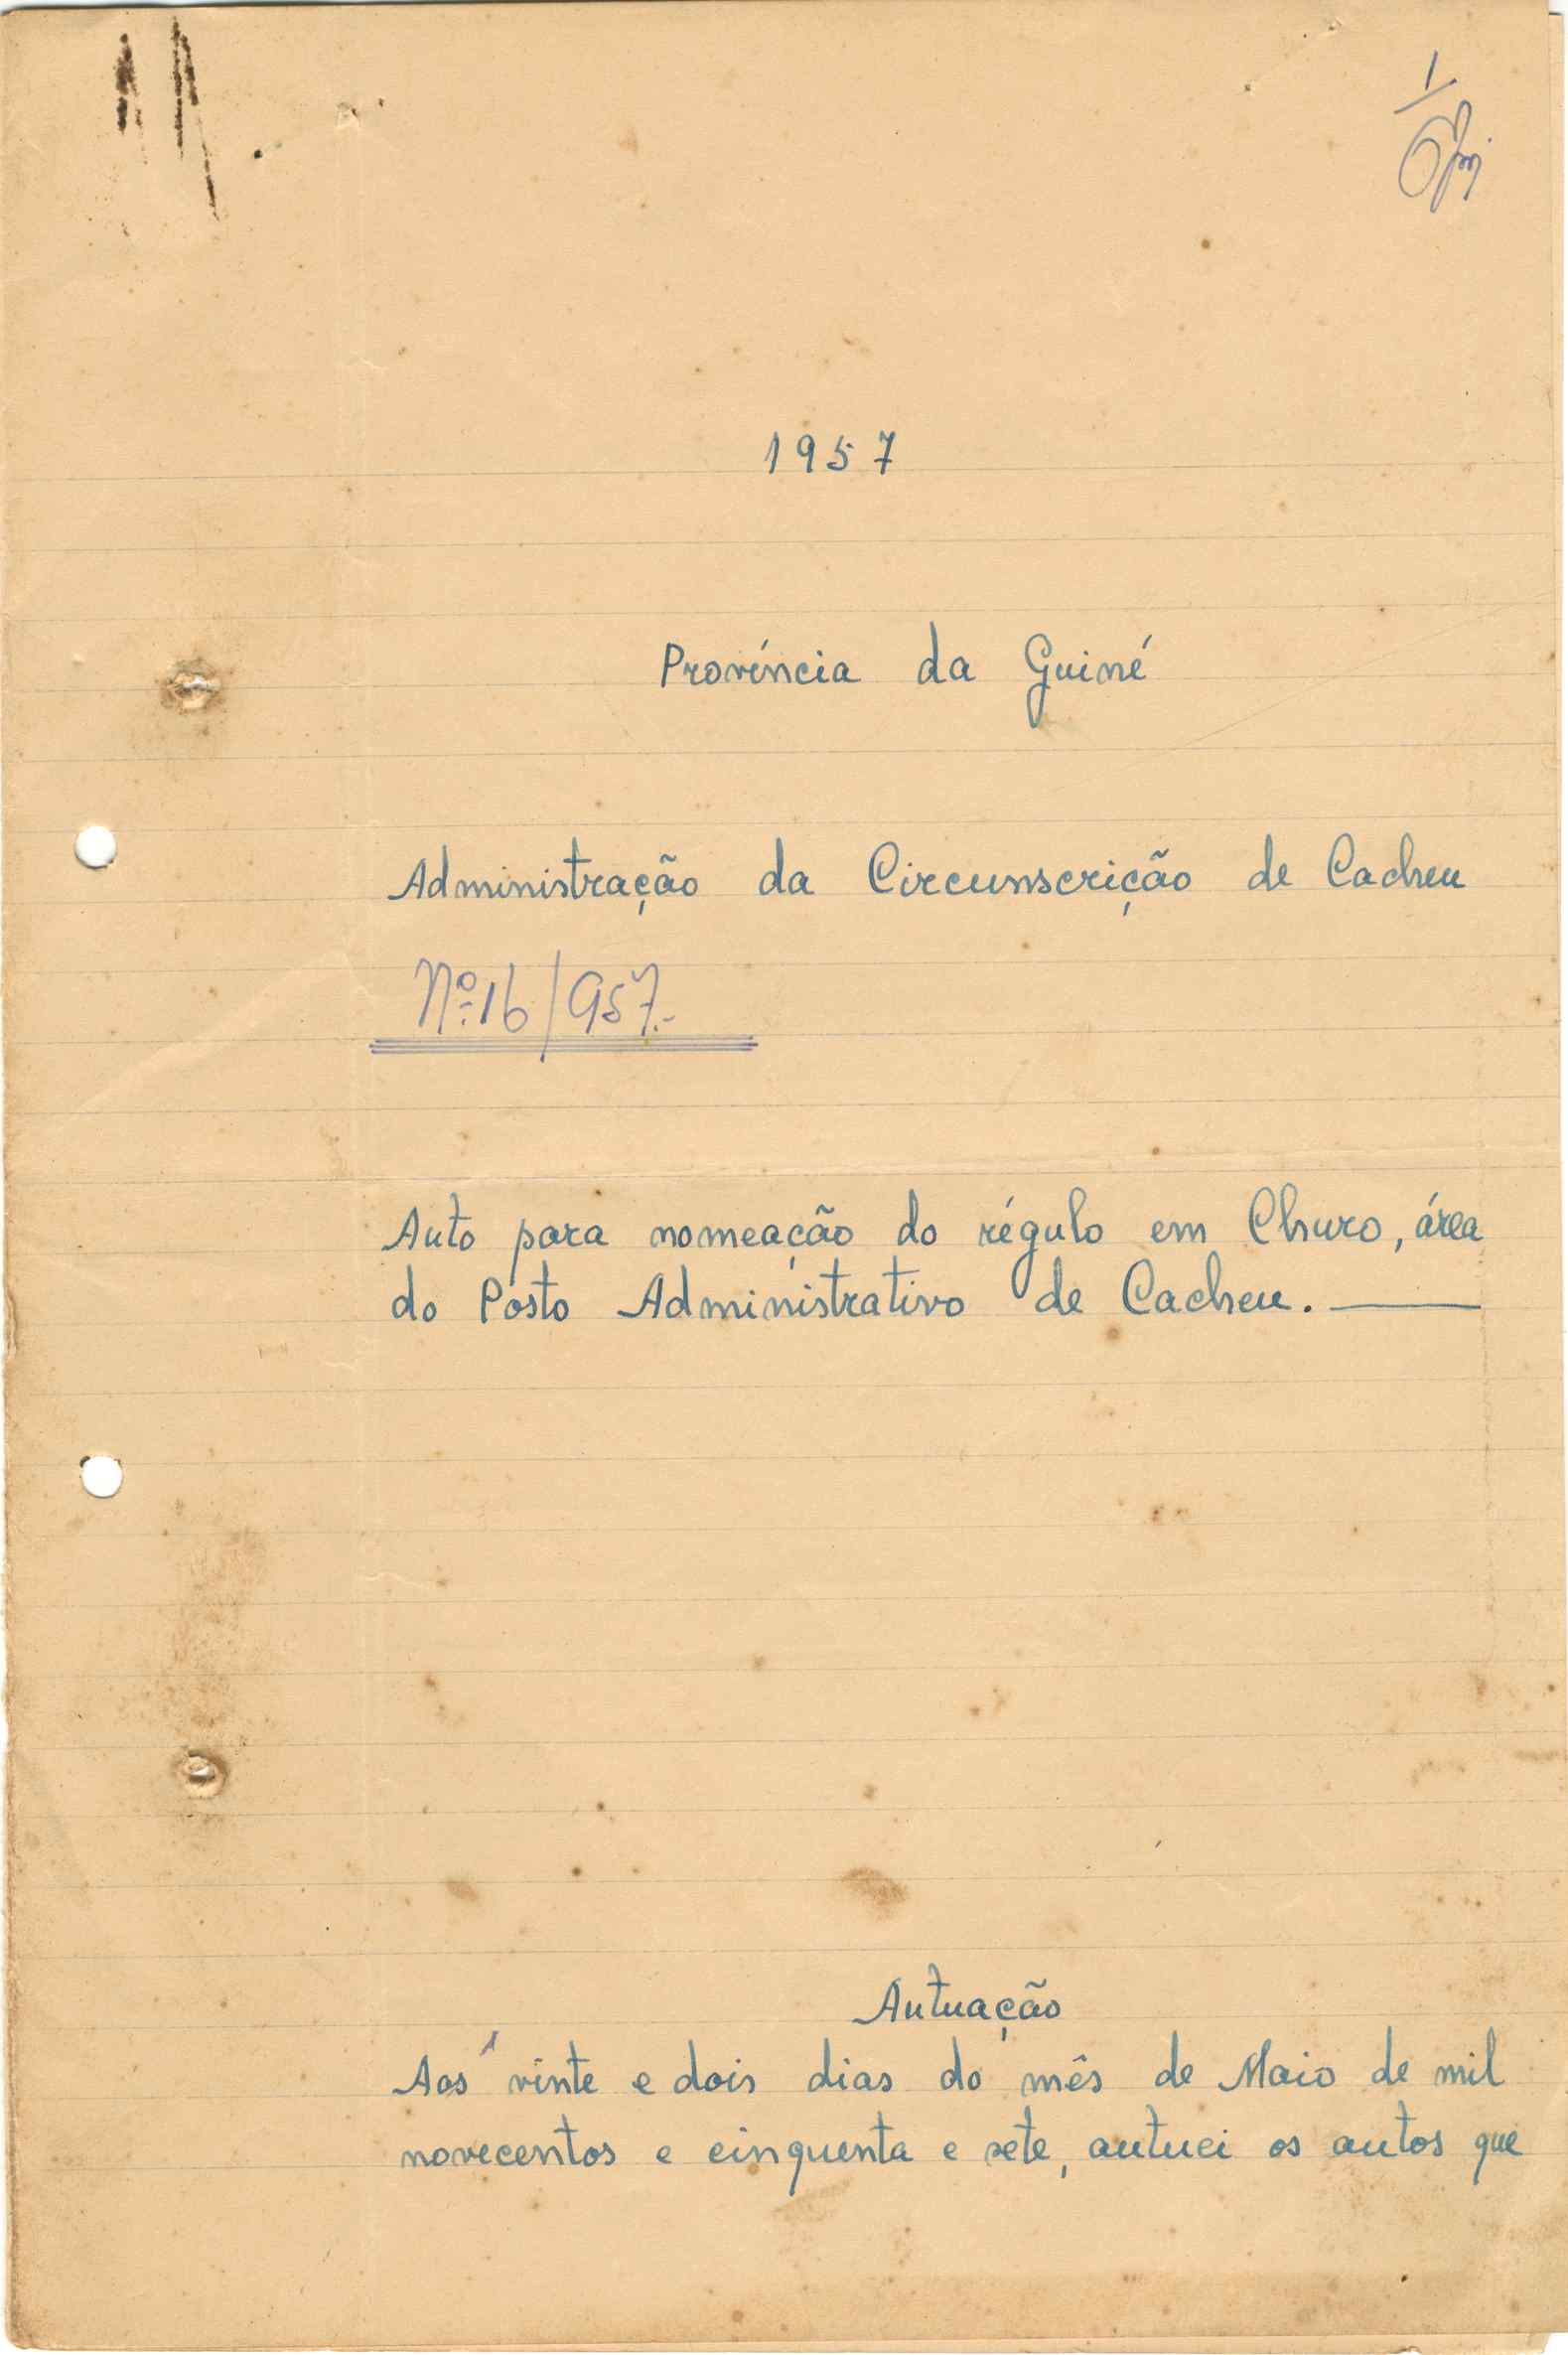 1
1957
Província da Guiné
Administração da Circunscrição de Cacheu
Nº 16/957.-
Auto para nomeação do régulo em Churo, área
do Posto Administrativo de Cacheu.
Autuação
Aos vinte e dois dias do mês de Maio de mil
novecentos e cinquenta e sete, autuei os autos que